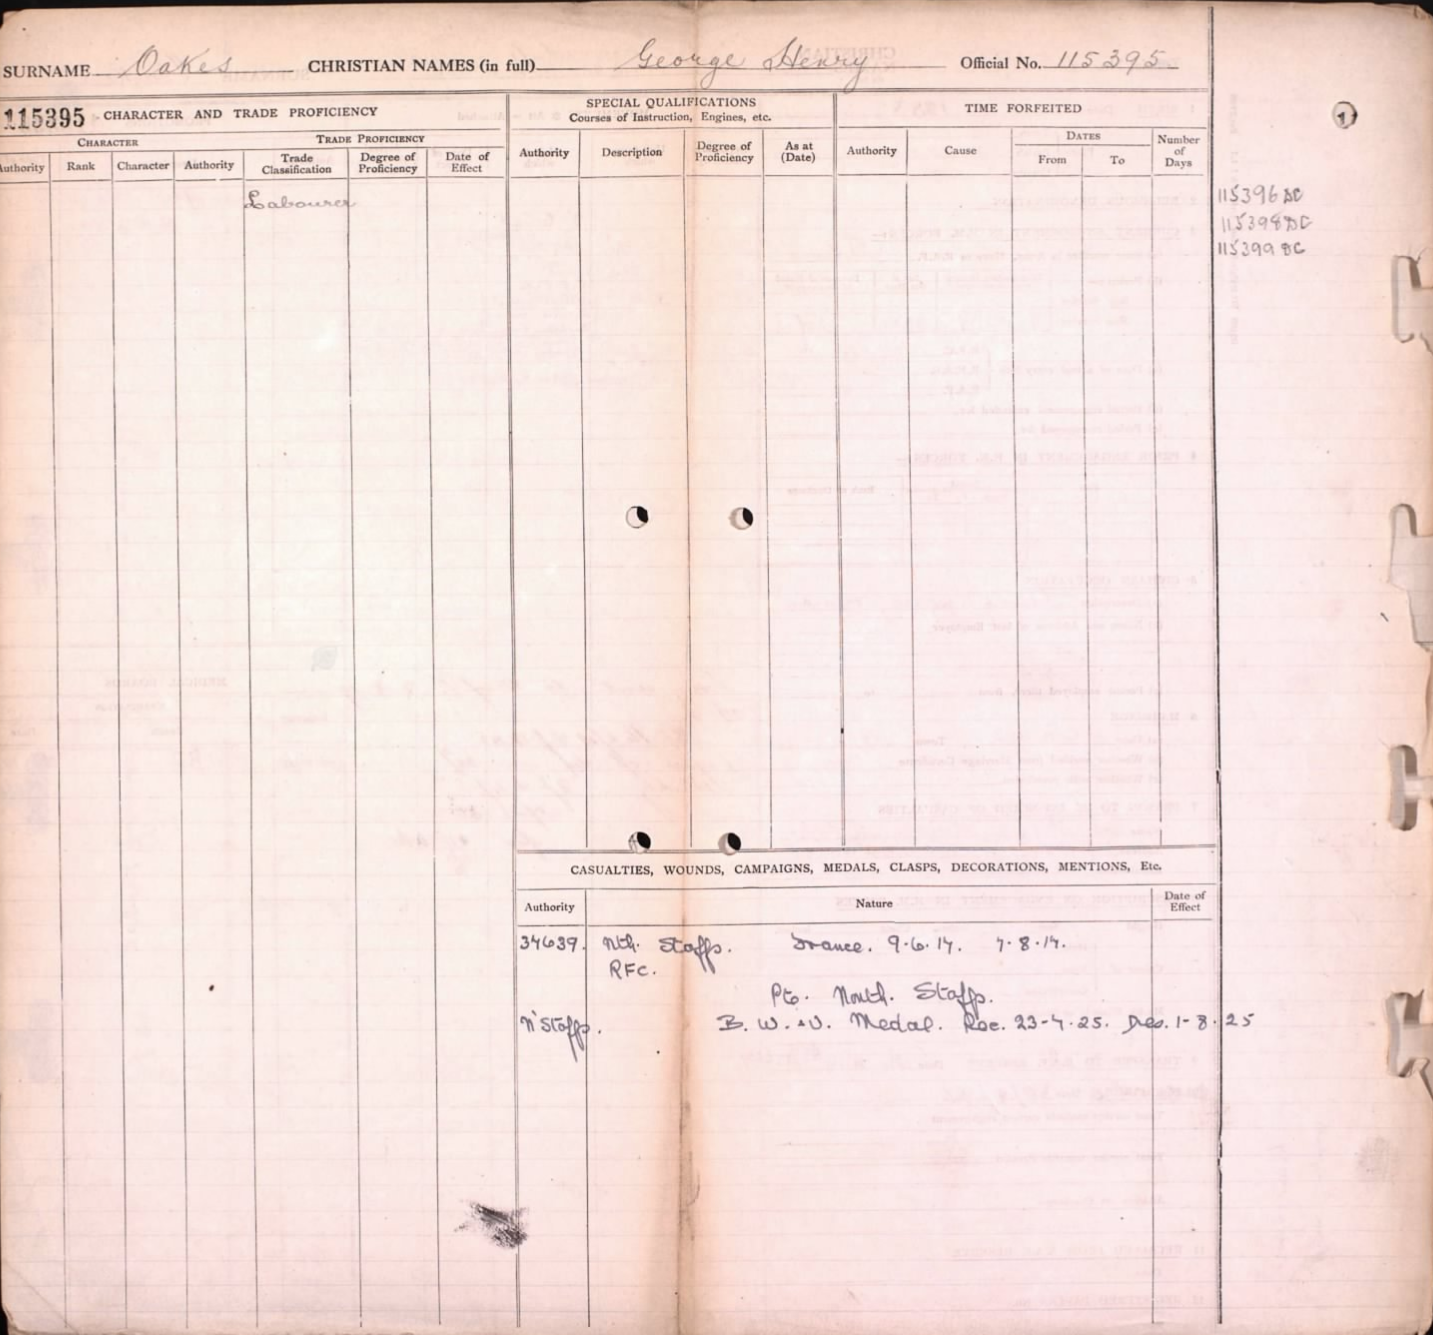 SURNAME Oakes CHRISTIAN NAMES (in full) George Henry Official No. 115395
115395 CHARACTER AND TRADE PROFICIENCY
SPECIAL QUALIFICATIONS
Courses of Instruction, Engines, etc.
TIME FORFEITED
CHARACTER TRADE PROFICIENCY
Authority Rank Character Authority Trade Classification Degree of Proficiency Date of Effect
Authority Description Degree of Proficiency As at (Date)
Authority Cause DATES From To Number of Days
Labourer
1
115396 DC
115398 DC
115399 DC
CASUALTIES, WOUNDS, CAMPAIGNS, MEDALS, CLASPS, DECORATIONS, MENTIONS, Etc.
Authority Nature Date of Effect
34639. Nth. Staffs. France. 9.6.17. 7.8.17.
RFC.
Pte. North. Staffs.
N'Staffs. B. W. & V. Medal. Roc. 23-4.25. Des. 1-8.25